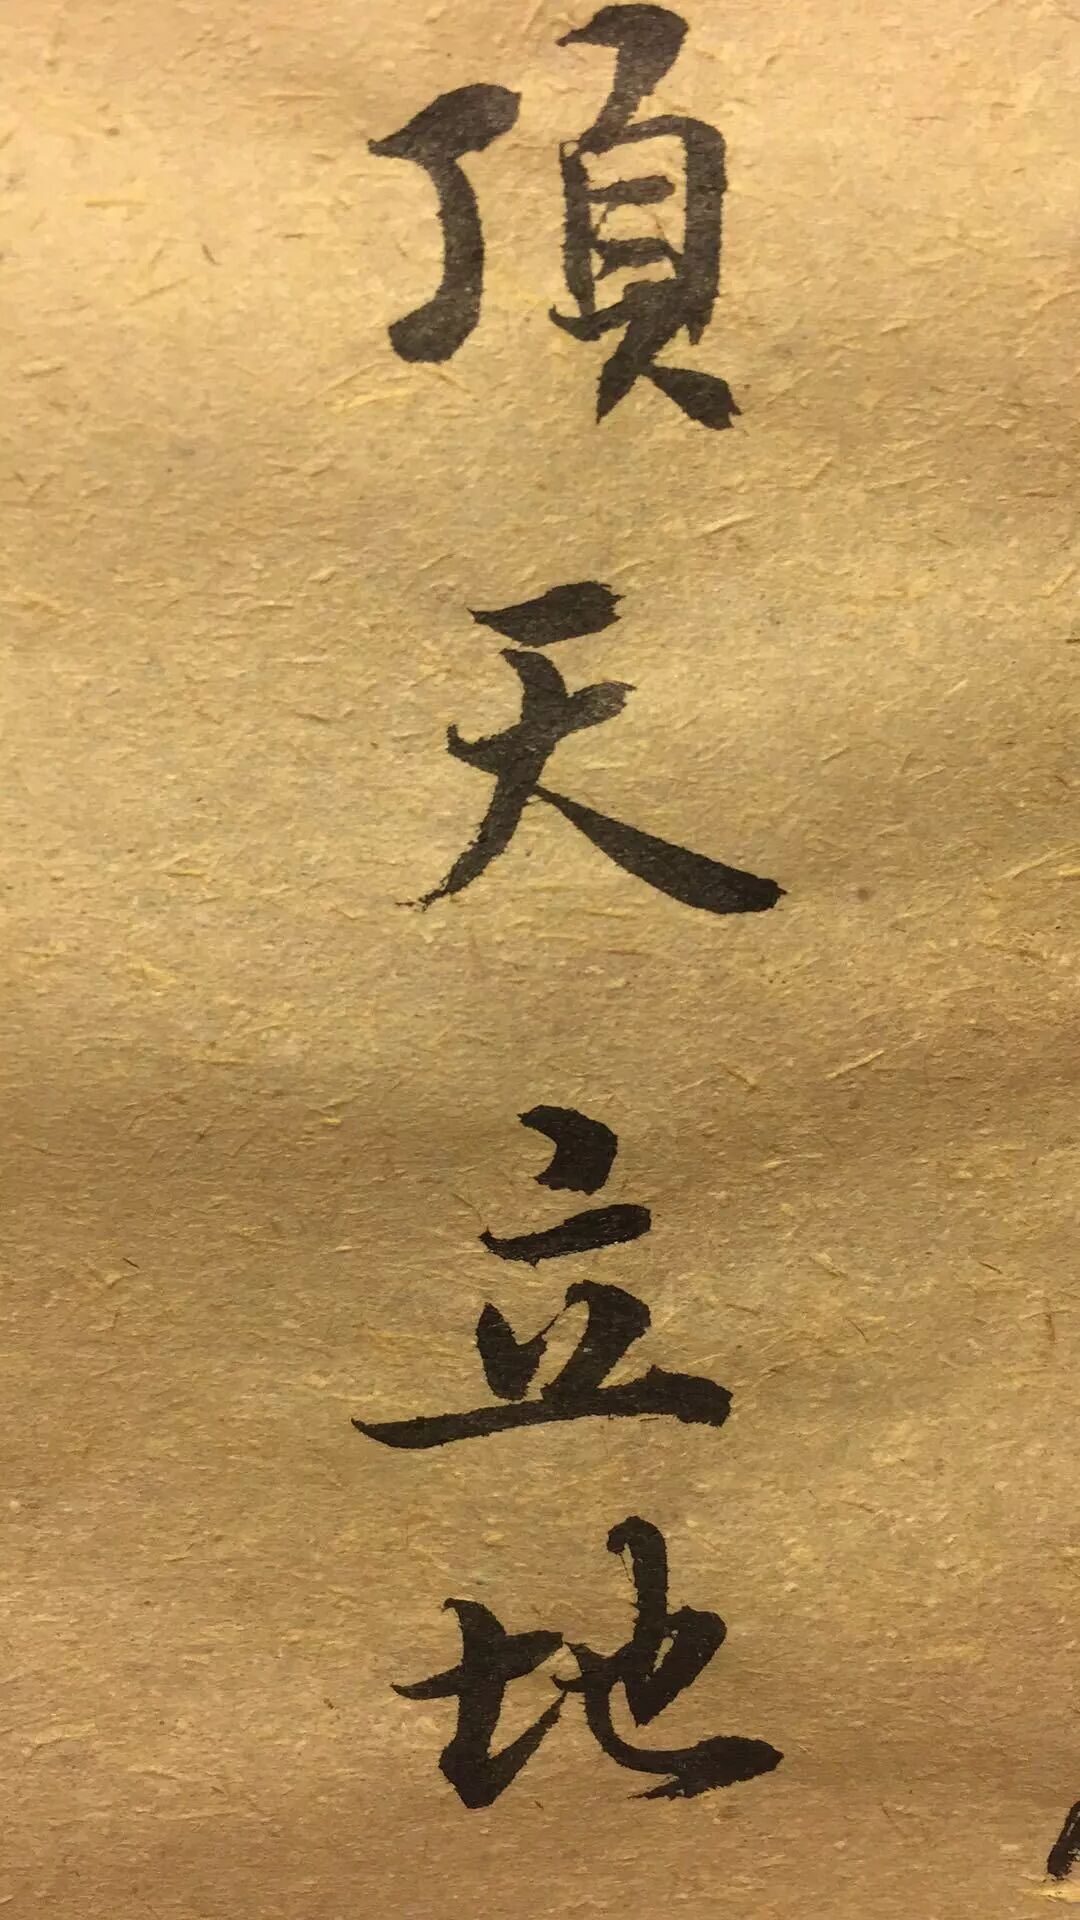 頂天立地